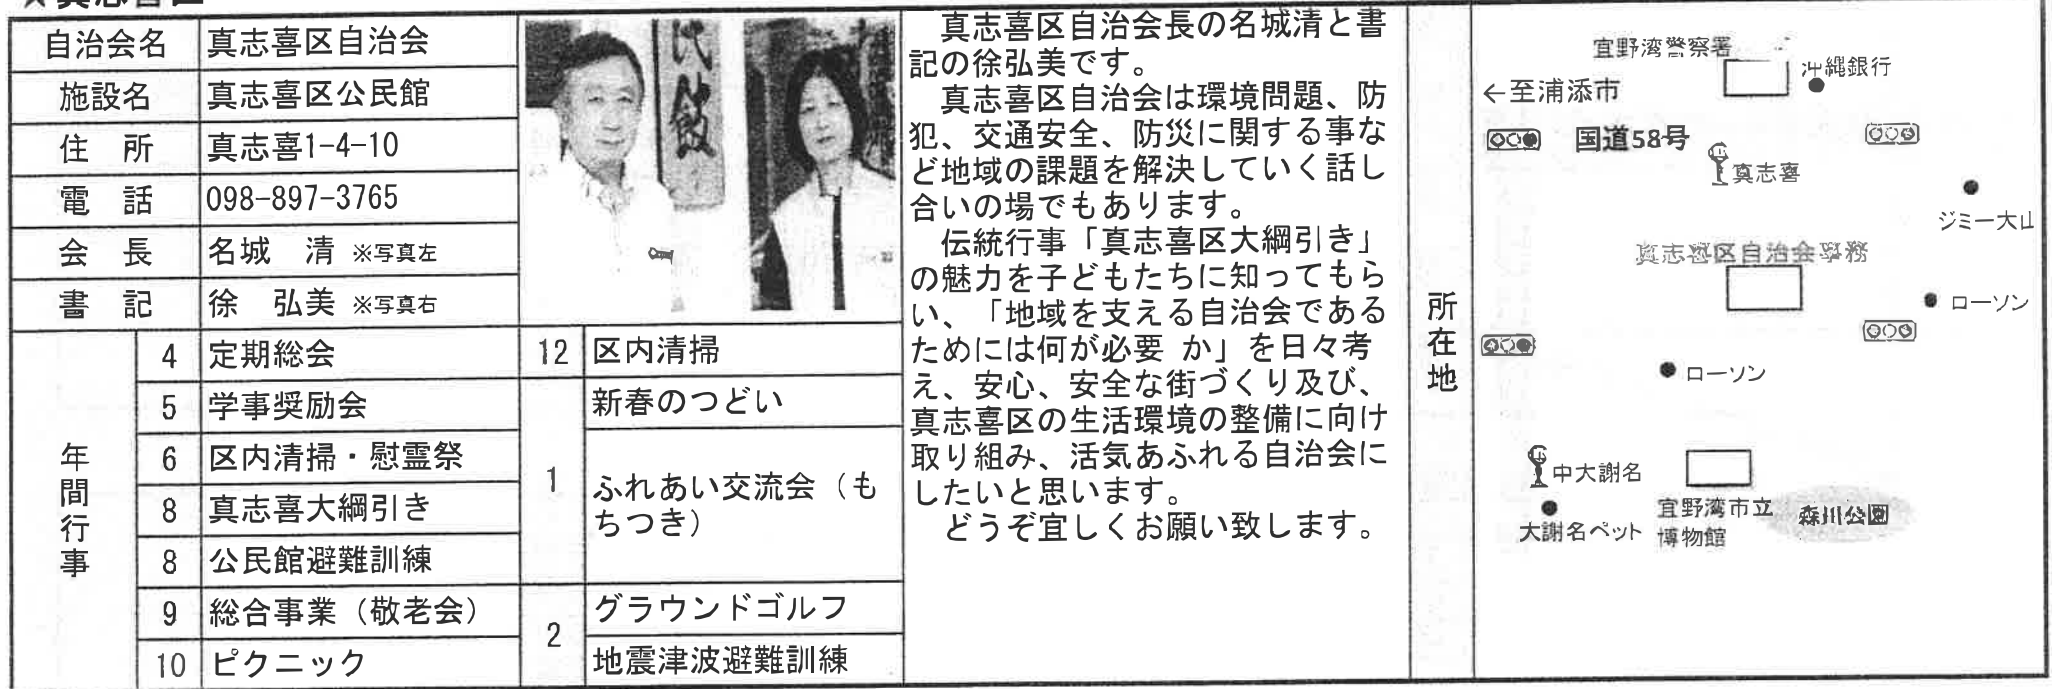 ★真志喜区
自治会名 真志喜区自治会
施設名 真志喜区公民館
住 所 真志喜1-4-10
電 話 098-897-3765
会 長 名城 清 ※写真左
書 記 徐 弘美 ※写真右
年間行事
4 定期総会
5 学事奨励会
6 区内清掃・慰霊祭
8 真志喜大綱引き
8 公民館避難訓練
9 総合事業（敬老会）
10 ピクニック
12 区内清掃
1 新春のつどい
ふれあい交流会（も
ちつき）
2 グラウンドゴルフ
地震津波避難訓練
民館
真志喜区自治会長の名城清と書
記の徐弘美です。
真志喜区自治会は環境問題、防
犯、交通安全、防災に関する事な
ど地域の課題を解決していく話し
合いの場でもあります。
伝統行事「真志喜区大綱引き」
の魅力を子どもたちに知ってもら
い、「地域を支える自治会である
ためには何が必要 か」を日々考
え、安心、安全な街づくり及び、
真志喜区の生活環境の整備に向け
取り組み、活気あふれる自治会に
したいと思います。
どうぞ宜しくお願い致します。
所在地
宜野湾警察署
沖縄銀行
←至浦添市
国道58号
真志喜
ジミー大山
真志喜区自治会事務
ローソン
ローソン
中大謝名
大謝名ペット
宜野湾市立
博物館
森川公園